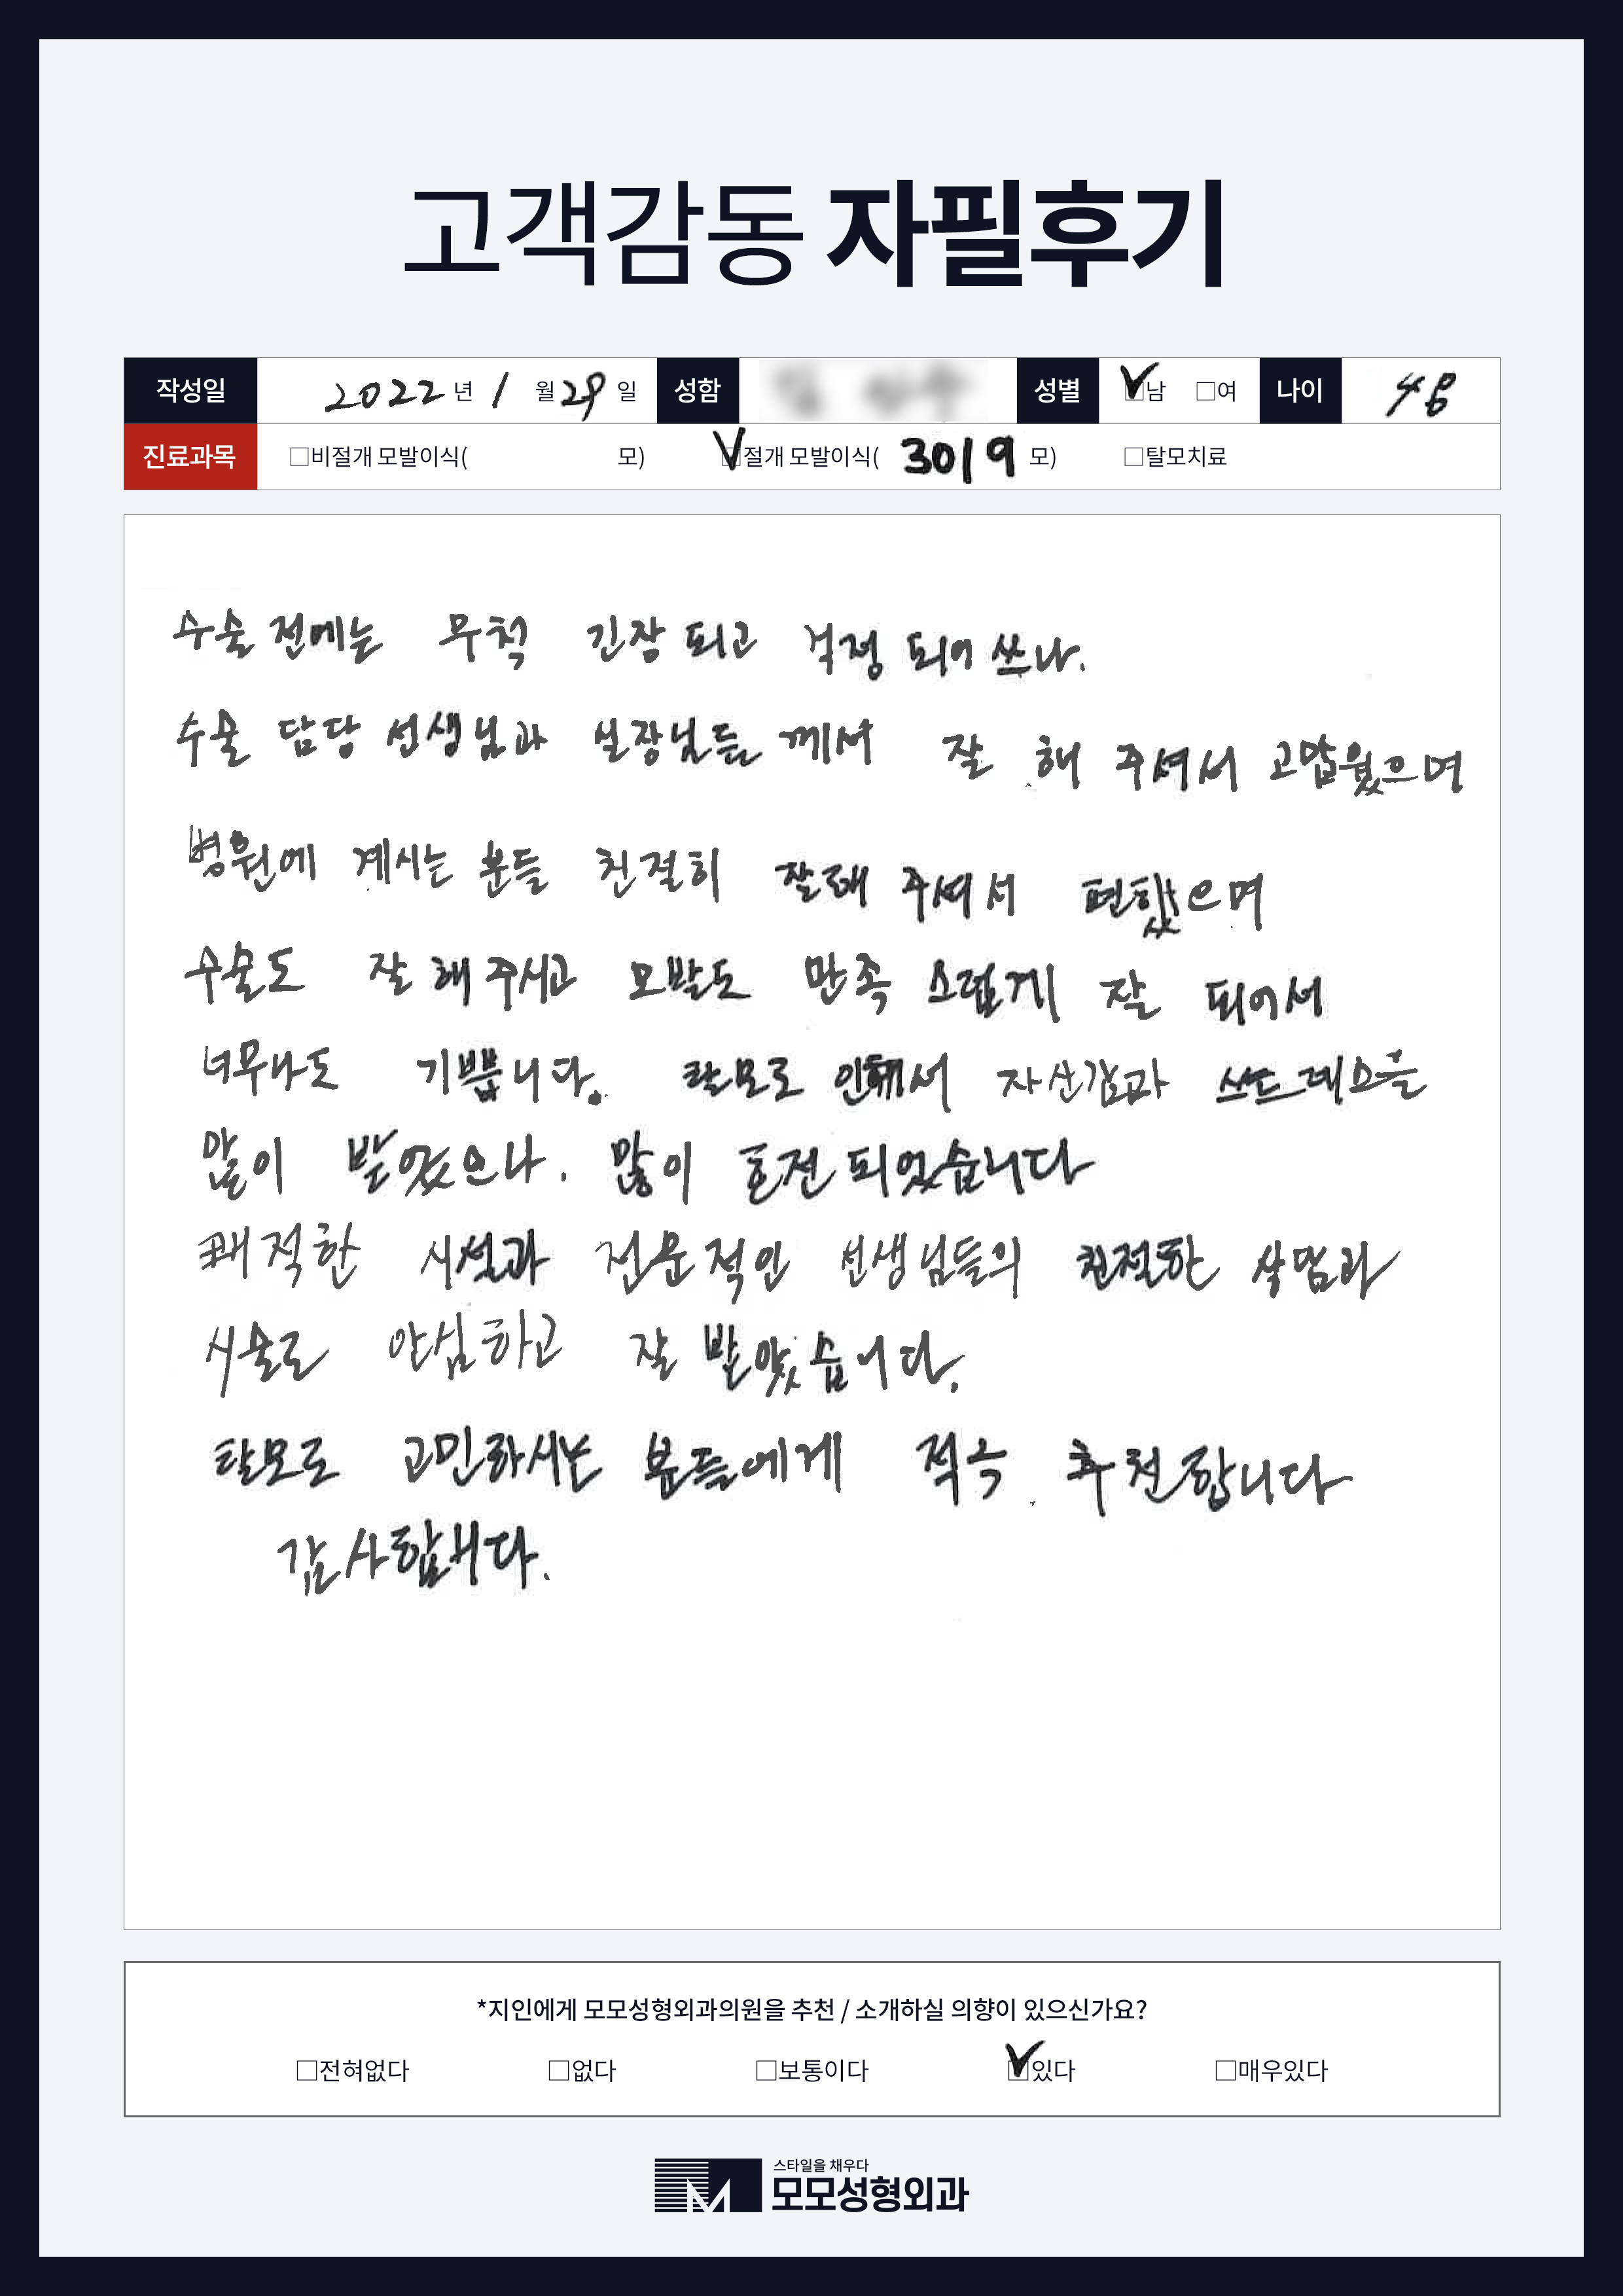 고객감동 자필후기
작성일 2022 년 1 월 29 일 성함 성별 ☑남 □여 나이 48
진료과목 □비절개 모발이식( 모) ☑절개 모발이식( 3019 모) □탈모치료
수술 전에는 무척 긴장 되고 걱정 되어 쓰나.
수술 담당 선생님과 실장님들 께서 잘 해 주셔서 고맙웠으며
병원에 계시는 분들 친절히 잘해 주셔서 편했으며
수술도 잘 해 주시고 모발도 만족 스럽게 잘 되어서
너무나도 기쁩니다. 탈모로 인해서 자신감과 쓰트레스을
많이 받았으나. 많이 호전 되었습니다
쾌적한 시설과 전문적인 선생님들의 친절한 상담과
시술로 안심하고 잘 받았습니다.
탈모로 고민하시는 분들에게 적극 추천합니다
감사합니다.
*지인에게 모모성형외과의원을 추천 / 소개하실 의향이 있으신가요?
□전혀없다 □없다 □보통이다 ☑있다 □매우있다
스타일을 채우다
모모성형외과